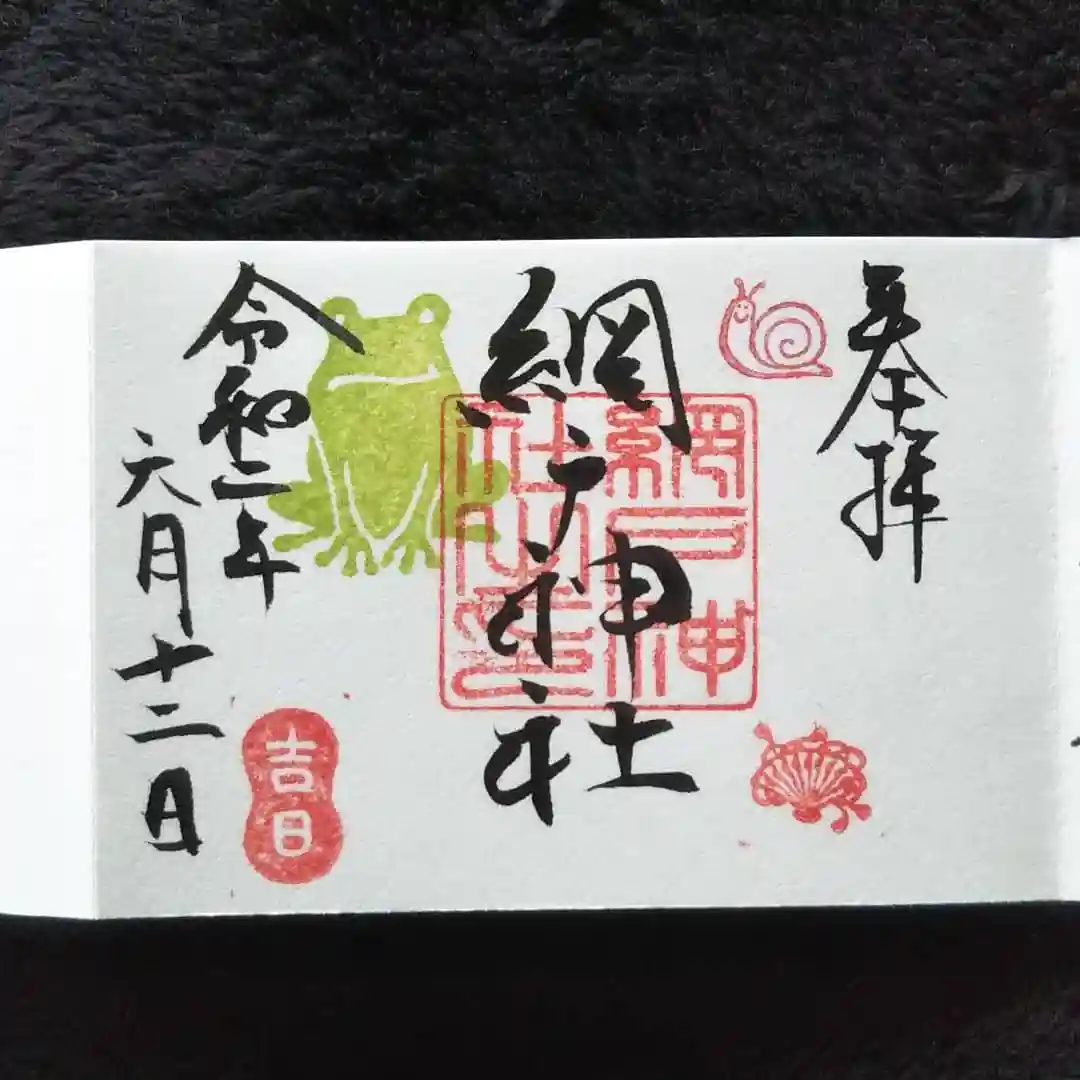 奉拝
網戸神社
網戸神
社之印
令和二年
六月十二日
吉日